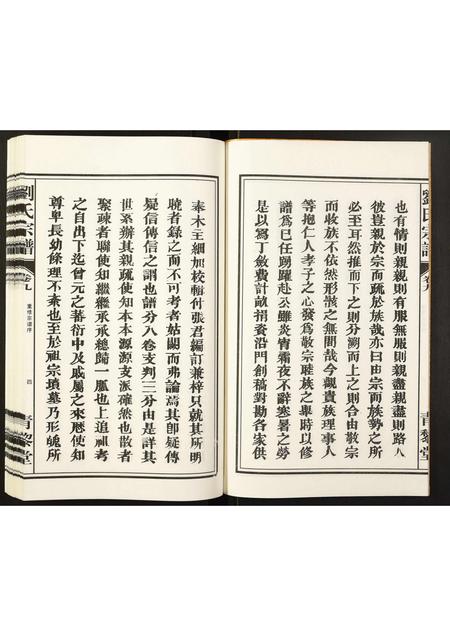 劉氏宗譜
卷九
青黎堂
也有情則親親則有服無服則親盡親盡則路人
彼豈親於宗而疏於族哉亦曰由宗而族勢之所
必至耳然推而下之則分溯而上之則合由敬宗
而收族不依然形骸之無間哉今觀貴族理事人
等抱仁人孝子之心發為敬宗睦族之舉時以修
譜為已任踴躍赴公雖炎宵霜夜不辭寒暑之勞
是以寫丁斂費計畝捐資沿門創稿對勘各家供
奉木主細加校輯付張君編訂兼梓只就其所明
曉者錄之而不可考者姑闕而弗論焉其即疑傳
疑信傳信之謂也譜分八卷支判三分由是詳其
世系辦其親疏使知本本源源支派確然也散者
聚疎者聯使知繼繼承承總歸一脈也上追祖考
之自出下迄曾元之蕃衍中及戚屬之來歷使知
尊卑長幼條理不紊也至於祖宗墳墓乃形魄所
劉氏宗譜
卷九
重修宗譜序
四
青黎堂